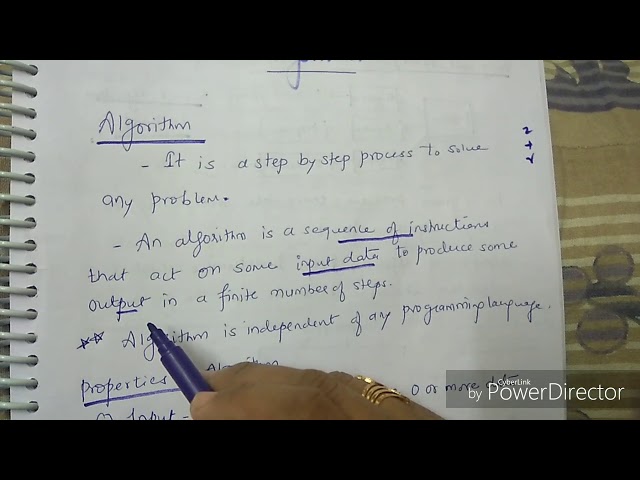 Algorithm
- It is a step by step process to solve
any problem.
- An algorithm is a sequence of instructions
that act on some input data to produce some
output in a finite number of steps.
** Algorithm is independent of any programming language.
Properties Algorithm
Input - 0 or more data
2+2
CyberLink
by PowerDirector